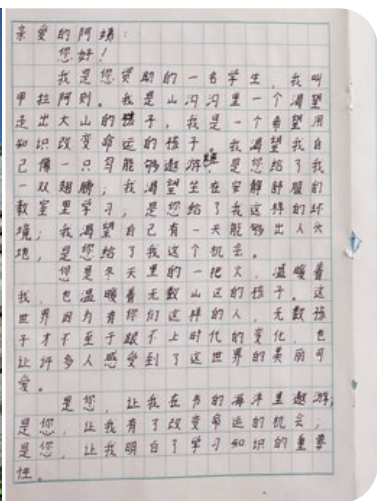 亲爱的阿姨：
您好！
我是您资助的一名学生，我叫
甲拉阿则。我是山沟沟里一个渴望
走出大山的孩子，我是一个希望用
知识改变命运的孩子。我渴望我自
己像一只鸟能够遨游，是您给了我
一双翅膀；我渴望坐在安静舒服的
教室里学习，是您给了我这样的环
境；我渴望自己有一天能够出人头
地，是您给了我这个机会。
您是冬天里的一把火，温暖着
我，也温暖着无数山区的孩子。这
世界因为有你们这样的人，无数孩
子才不至于跟不上时代的变化，也
让许多人感受到了这世界的美丽可
爱。
是您，让我在书的海洋里遨游；
是您，让我有了改变命运的机会；
是您，让我明白了学习知识的重要
性。